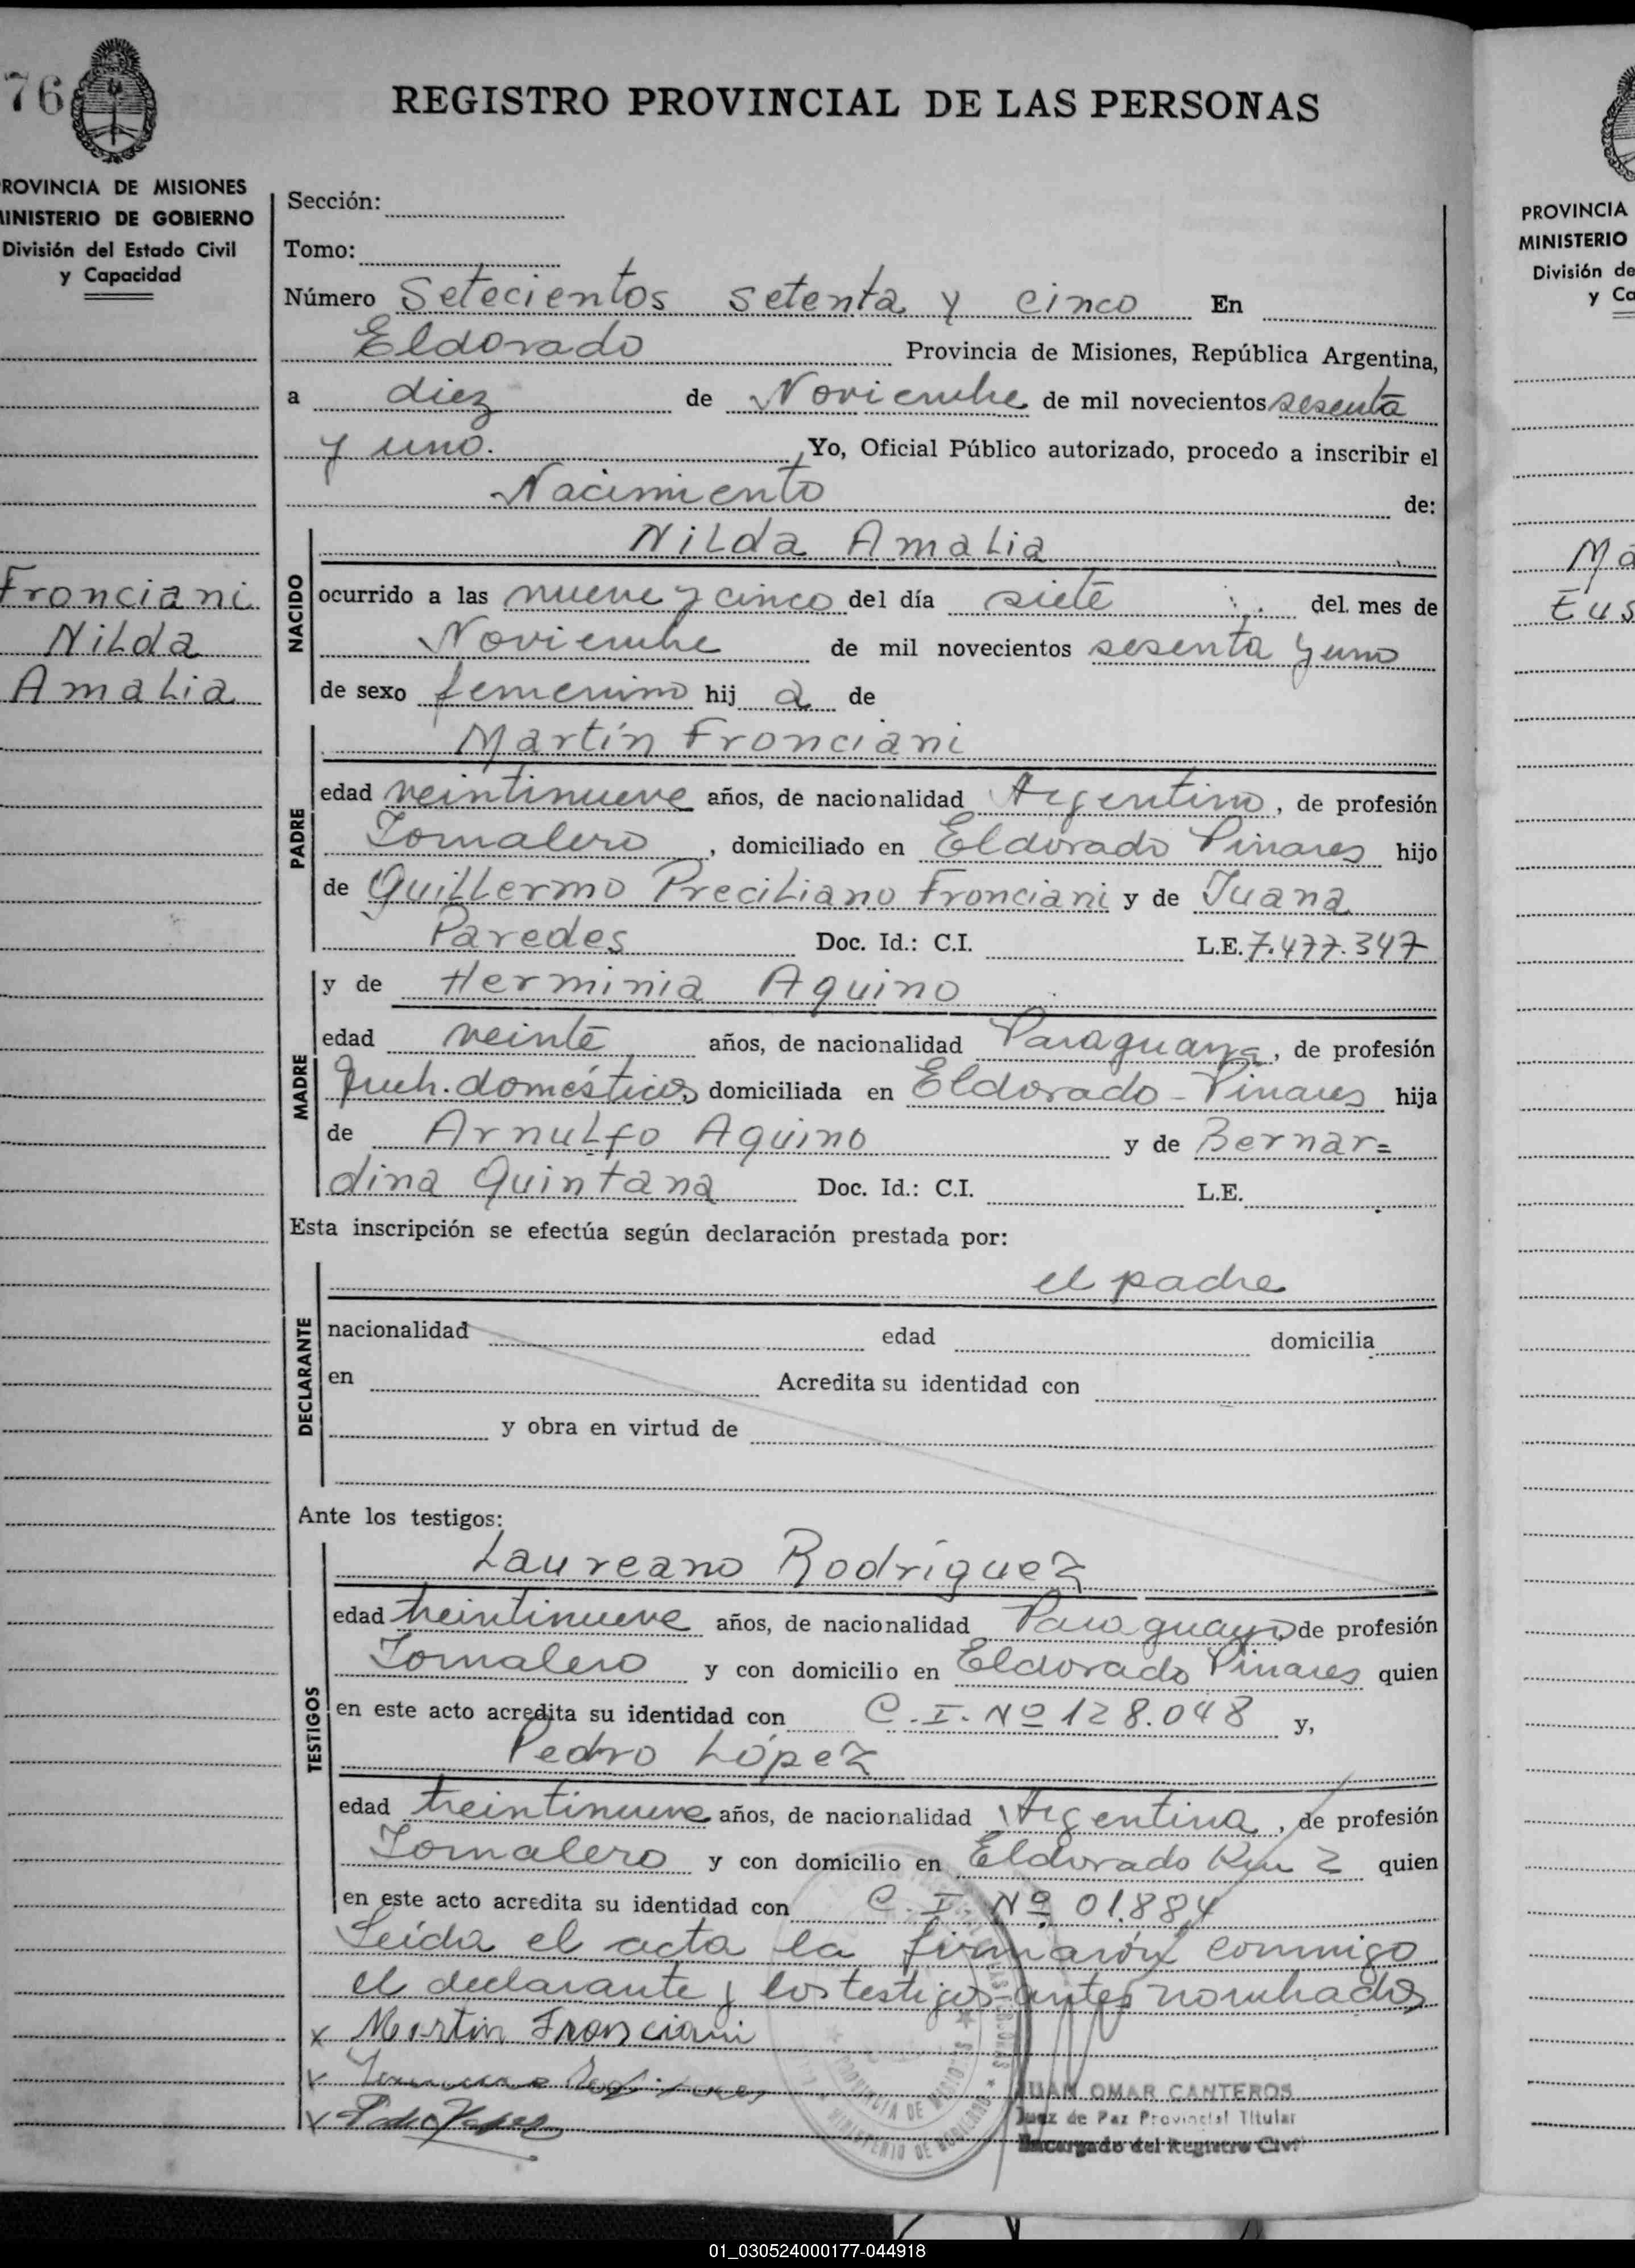 76
REGISTRO PROVINCIAL DE LAS PERSONAS
ROVINCIA DE MISIONES
MINISTERIO DE GOBIERNO
División del Estado Civil
y Capacidad
Fronciani
Nilda
Amalia
Sección:
Tomo:
Número Setecientos setenta y cinco En
Eldorado Provincia de Misiones, República Argentina,
a diez de Noviembre de mil novecientos sesenta
y uno. Yo, Oficial Público autorizado, procedo a inscribir el
Nacimiento de:
NACIDO
Nilda Amalia
ocurrido a las nueve y cinco del día siete del mes de
Noviembre de mil novecientos sesenta y uno
de sexo femenino hij a de
PADRE
Martín Fronciani
edad veintinueve años, de nacionalidad Argentino, de profesión
Jornalero, domiciliado en Eldorado Pinares hijo
de Guillermo Preciliano Fronciani y de Juana
Paredes Doc. Id.: C.I. L.E. 7.477.347
MADRE
y de Herminia Aquino
edad veinte años, de nacionalidad Paraguaya, de profesión
Queh. domésticos, domiciliada en Eldorado - Pinares hija
de Arnulfo Aquino y de Bernar=
dina Quintana Doc. Id.: C.I. L.E.
Esta inscripción se efectúa según declaración prestada por:
DECLARANTE
el padre
nacionalidad edad domicilia
en Acredita su identidad con
y obra en virtud de
Ante los testigos:
TESTIGOS
Laureano Rodríguez
edad treintinueve años, de nacionalidad Paraguayo, de profesión
Jornalero y con domicilio en Eldorado Pinares quien
en este acto acredita su identidad con C.I. Nº 128.048 y,
Pedro López
edad treintinueve años, de nacionalidad Argentina, de profesión
Jornalero y con domicilio en Eldorado Km 2 quien
en este acto acredita su identidad con C.I. Nº 01.884
Leída el acta la firmarón conmigo
el declarante y los testigos antes nombrados
x Martin Fronciani
JUAN OMAR CANTEROS
Juez de Paz Provincial Titular
Encargado del Registro Civil
PROVINCIA DE MISIONES
MINISTERIO DE GOBIERNO
PROVINCIA
MINISTERIO
División de
y Ca
Ma
Eus
01_030524000177-044918